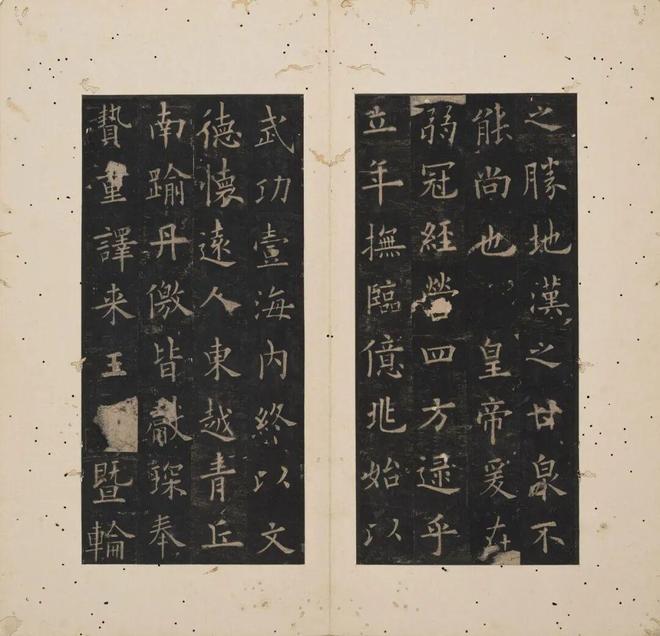 之勝地漢之甘泉不
能尚也 皇帝爰在
弱冠經營四方逮乎
立年撫臨億兆始以
武功壹海内終以文
德懷遠人東越青丘
南踰丹儌皆獻賝奉
贄重譯来王暨輪